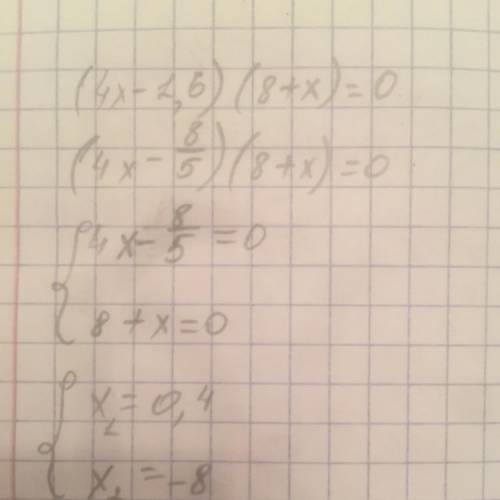 (4x-1,6)(8+x)=0
(4x-8/5)(8+x)=0
{4x-8/5=0
8+x=0
{x₁=0,4
x₂=-8